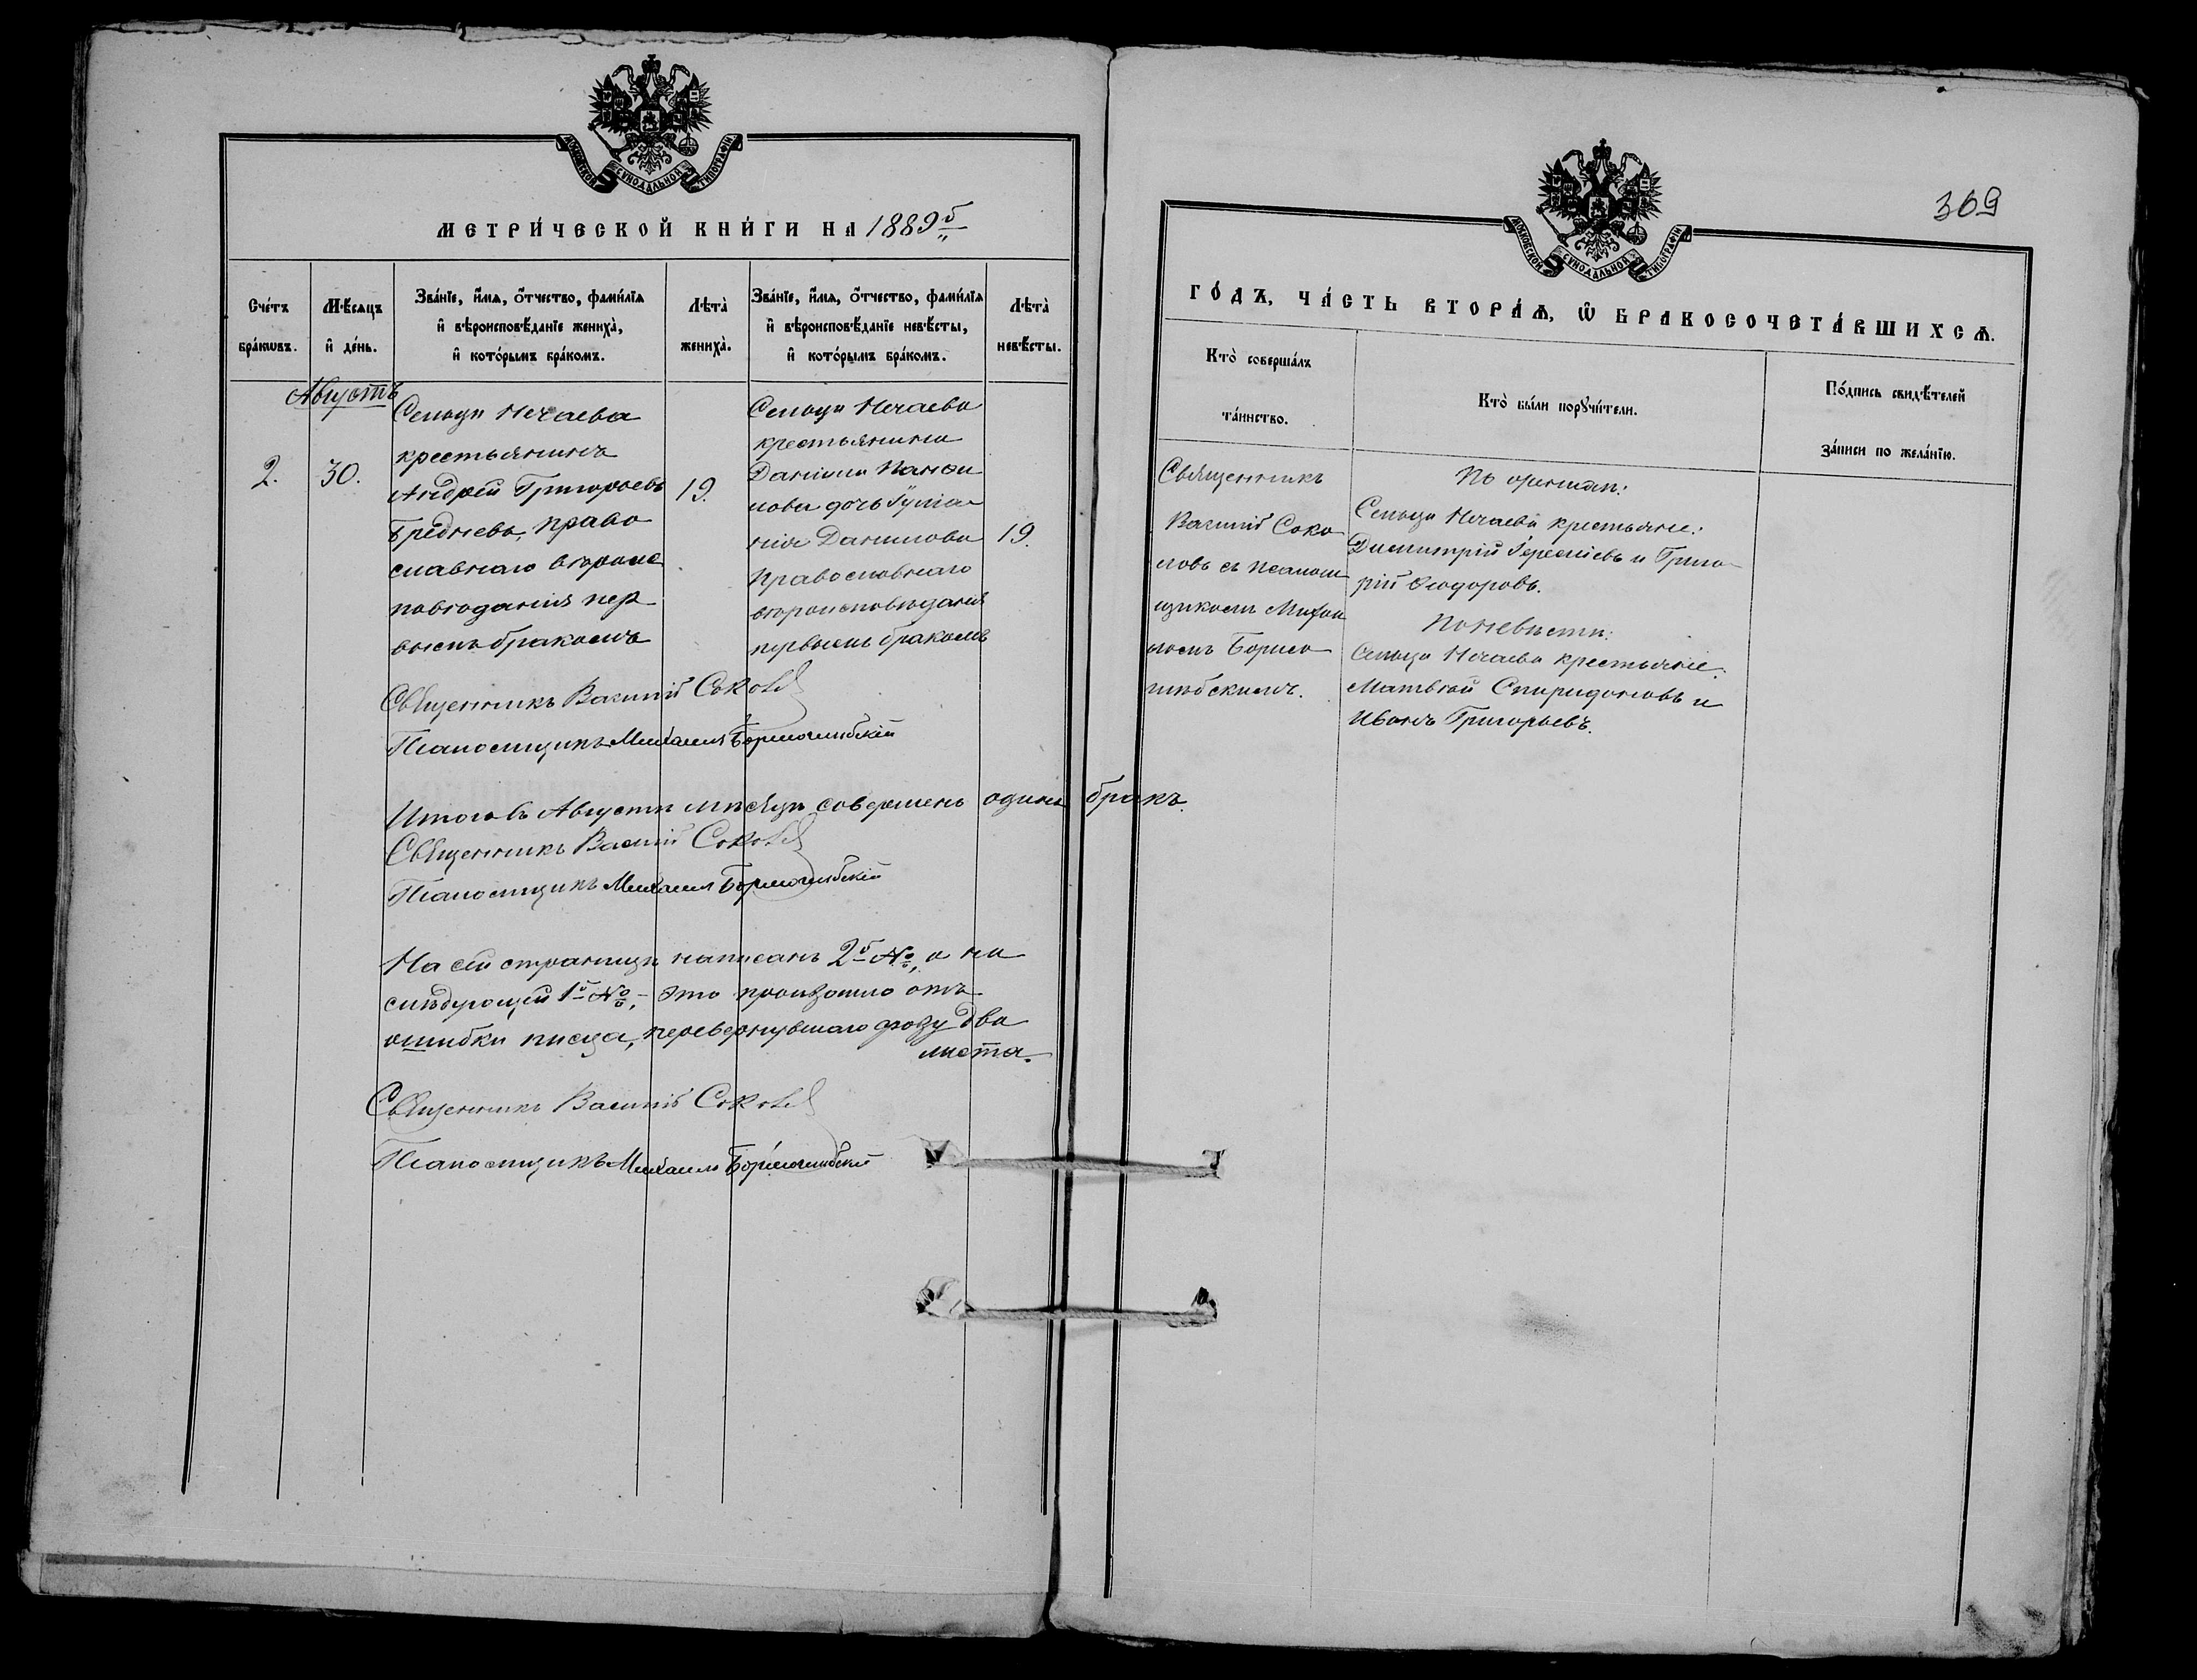 МОСКОВСКОЙ СѴНОДАЛЬНОЙ ТИПОГРАФІИ
МЕТРИ́ЧЕСКОЙ КНИ́ГИ НА 1889й
Сче́тъ бра́кѡвъ.
М҃ѣсяцъ и҆ де́нь.
Зва́нїе, и҆́мѧ, ѻ҆́тчество, фами́лїѧ
и҆ вѣроисповѣ́данїе жениха̀,
и҆ кото́рымъ бра́комъ.
Лѣта̀
жениха̀.
Зва́нїе, и҆́мѧ, ѻ҆́тчество, фами́лїѧ
и҆ вѣроисповѣ́данїе невѣ́сты,
и҆ кото́рымъ бра́комъ.
Лѣта̀
невѣ́сты.
Августъ
2.
30.
Сельца Нечаева
крестьянинъ
Андрей Григорьевъ
Бредневъ, право
славнаго вѣроис
повѣданія пер
вымъ бракомъ
19.
Сельца Нечаева
крестьянина
Даніила
дочь
Данилова
православнаго
вѣроисповѣданія
первымъ бракомъ
19.
Священникъ Василій Соколов
Псаломщикъ Михаилъ Борисоглѣбскій
Итого въ Августѣ мѣсяцѣ совершенъ одинъ бракъ.
Священникъ Василій Соколов
Псаломщикъ Михаилъ Борисоглѣбскій
На сей страницѣ написанъ 2й №, а на
слѣдующей 1й №, – это произошло отъ
ошибки писца, перевернувшаго сразу два
листа.
Священникъ Василій Соколов
Псаломщикъ Михаилъ Борисоглѣбскій
369
МОСКОВСКОЙ СѴНОДАЛЬНОЙ ТИПОГРАФІИ
ГО́ДЪ, ЧА́СТЬ ВТОРА́Ѧ, Ѡ҆ БРАКОСОЧЕТА́ВШИХСѦ.
Кто̀ соверша́лъ
та́инство.
Кто̀ бы́ли порꙋчи́тели.
По́дпись свидѣ́телей
за́писи по жела́нїю.
Священникъ
Василій Соко
ловъ съ псаломщ
щикомъ Михаи
ломъ Борисо
глѣбскимъ.
По женихѣ:
Сельца Нечаева крестьяне:
Димитрій Іереміевъ и Григо
рій Ѳеодоровъ.
По невѣстѣ:
Сельца Нечаева крестьяне:
Матвѣй Спиридоновъ и
Иванъ Григорьевъ.